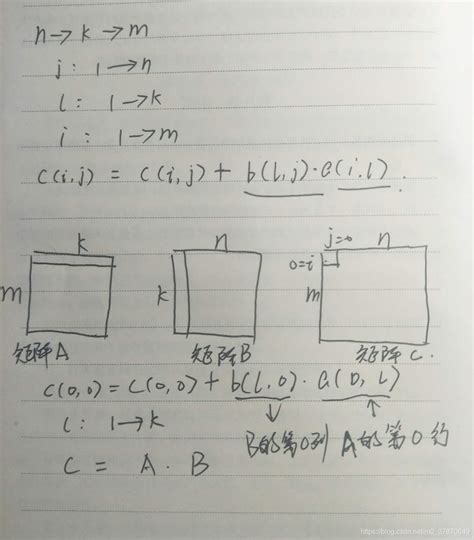 n→k→m
j: 1→n
l: 1→k
i: 1→m
c(i,j) = c(i,j) + b(l,j)·a(i,l).
k
m
矩阵A
n
k
矩阵B
j=0 n
0=i
m
矩阵C.
c(0,0) = c(0,0) + b(l,0)·a(0,l)
l: 1→k
B的第0列 A的第0行
C = A·B
https://blog.csdn.net/m2_37870649